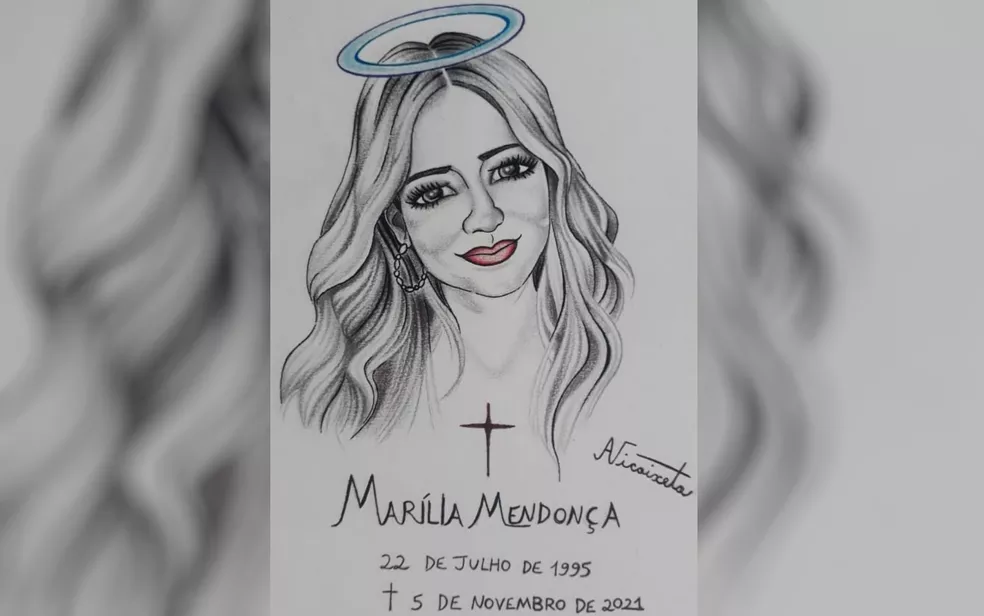 ANicaixeta
MARÍLIA MENDONÇA
22 DE JULHO DE 1995
† 5 DE NOVEMBRO DE 2021